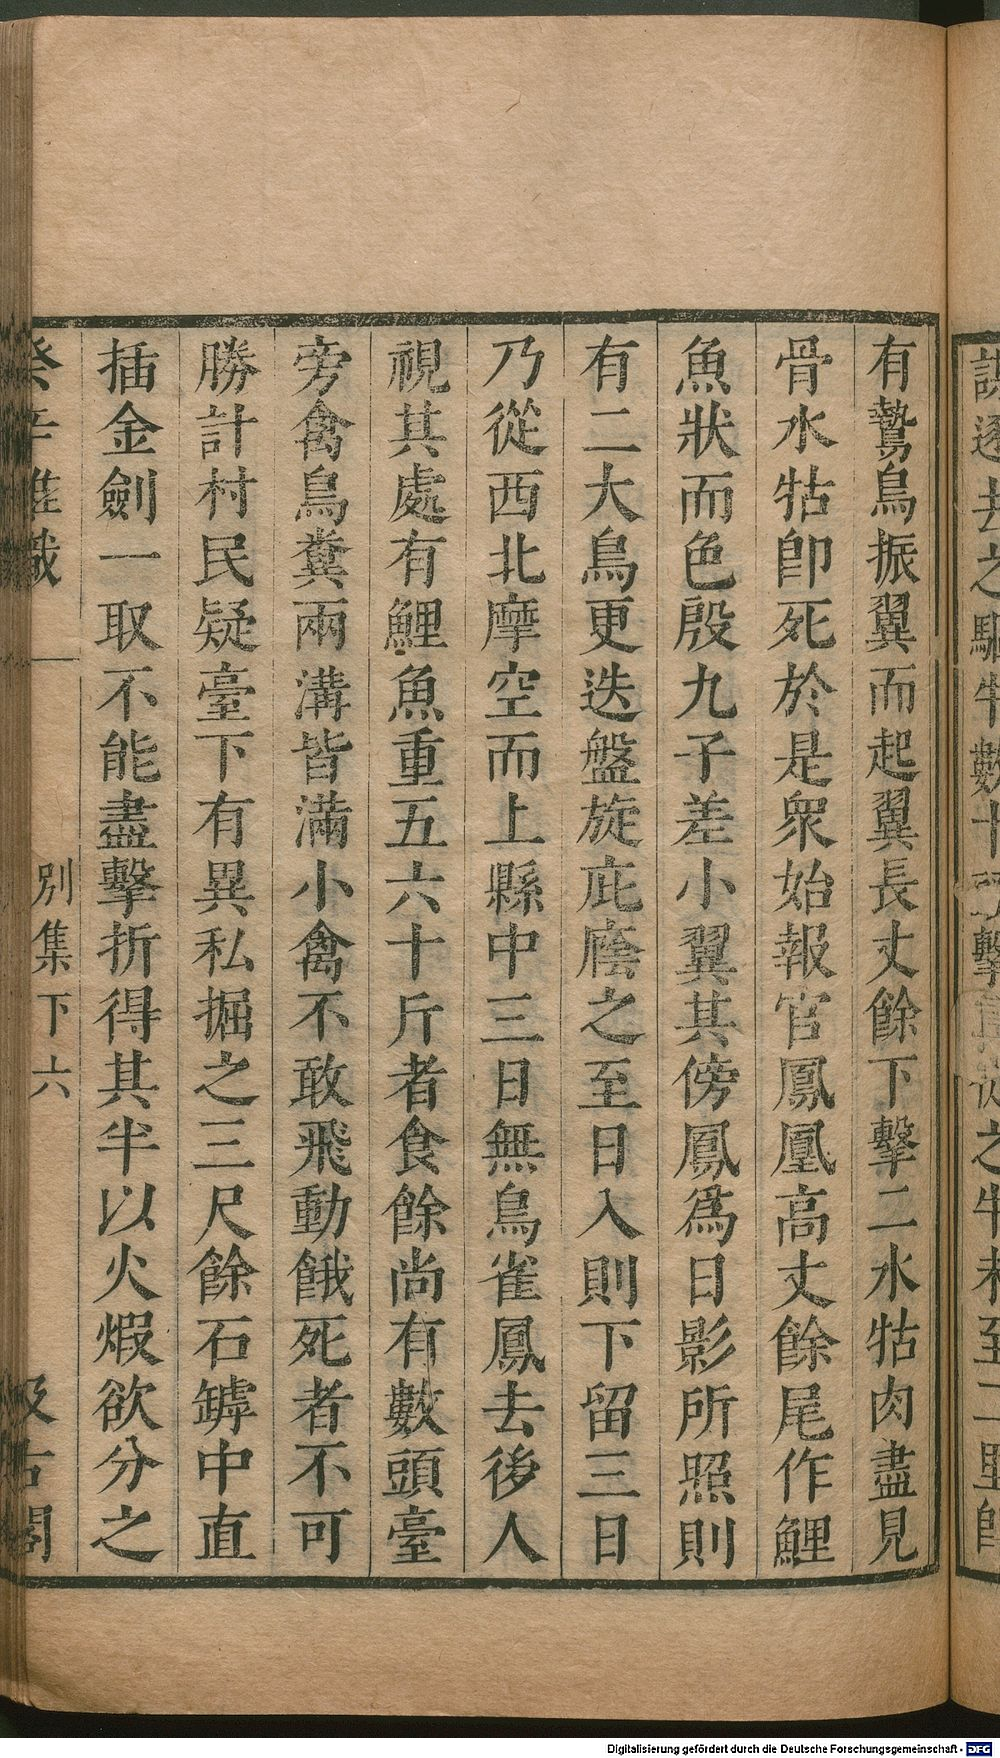 有鷙鳥振翼而起翼長丈餘下擊二水牯肉盡見
骨水牯卽死於是衆始報官鳳凰高丈餘尾作鯉
魚狀而色殷九子差小翼其傍鳳爲日影所照則
有二大鳥更迭盤旋庇廕之至日入則下留三日
乃從西北摩空而上縣中三日無鳥雀鳳去後人
視其處有鯉魚重五六十斤者食餘尚有數頭臺
旁禽鳥糞兩溝皆滿小禽不敢飛動餓死者不可
勝計村民疑臺下有異私掘之三尺餘石罅中直
插金劍一取不能盡擊折得其半以火煆欲分之
癸辛雜識 別集下 六 汲古閣
Digitalisierung gefördert durch die Deutsche Forschungsgemeinschaft - DFG